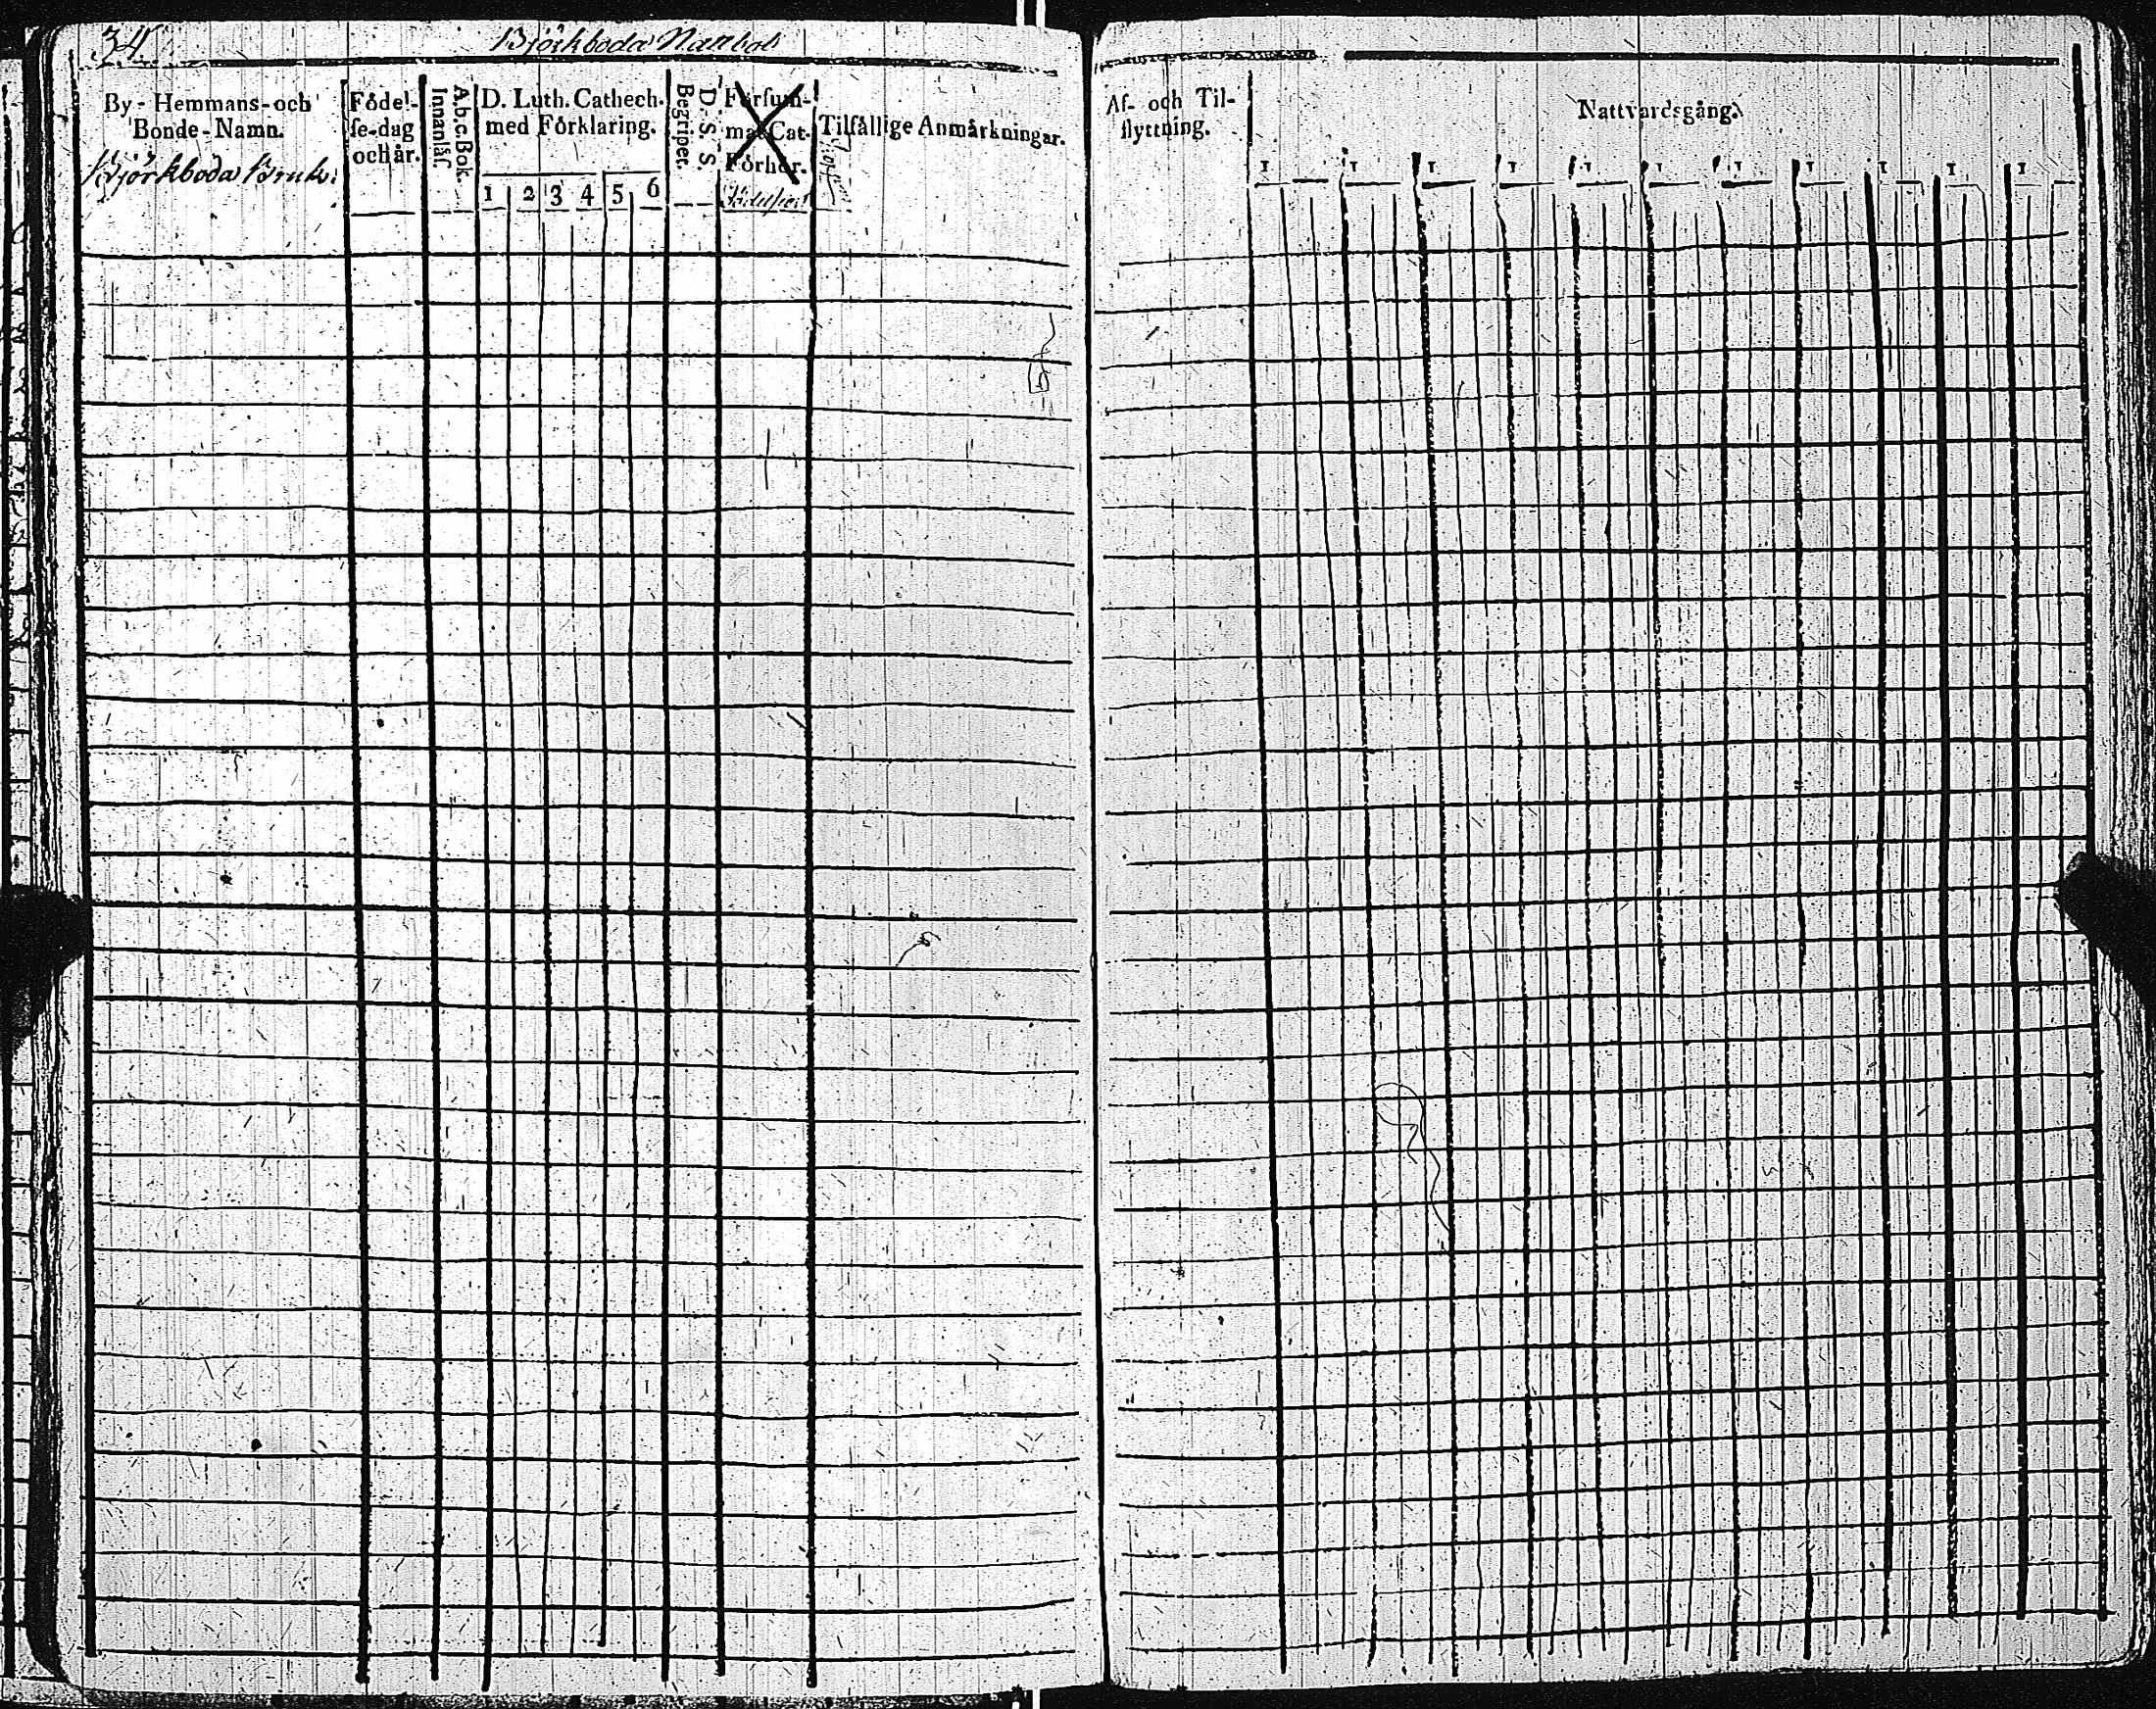 34
Björkboda
By - Hemmans- och
Bonde - Namn.
Björkboda Bruk.
Födel-
se-dag
och år.
A. b. c Bok.
Innanläs.
D. Luth. Cathech.
med Förklaring.
1 2 3 4 5 6
D. S. S. S.
Begripet.
Försum-
mat Cat.
Förhör.
Tilfällige Anmärkningar.
Af- och Til-
flyttning.
Nattvardsgång.
1 1 1 1 1 1 1 1 1 1 1